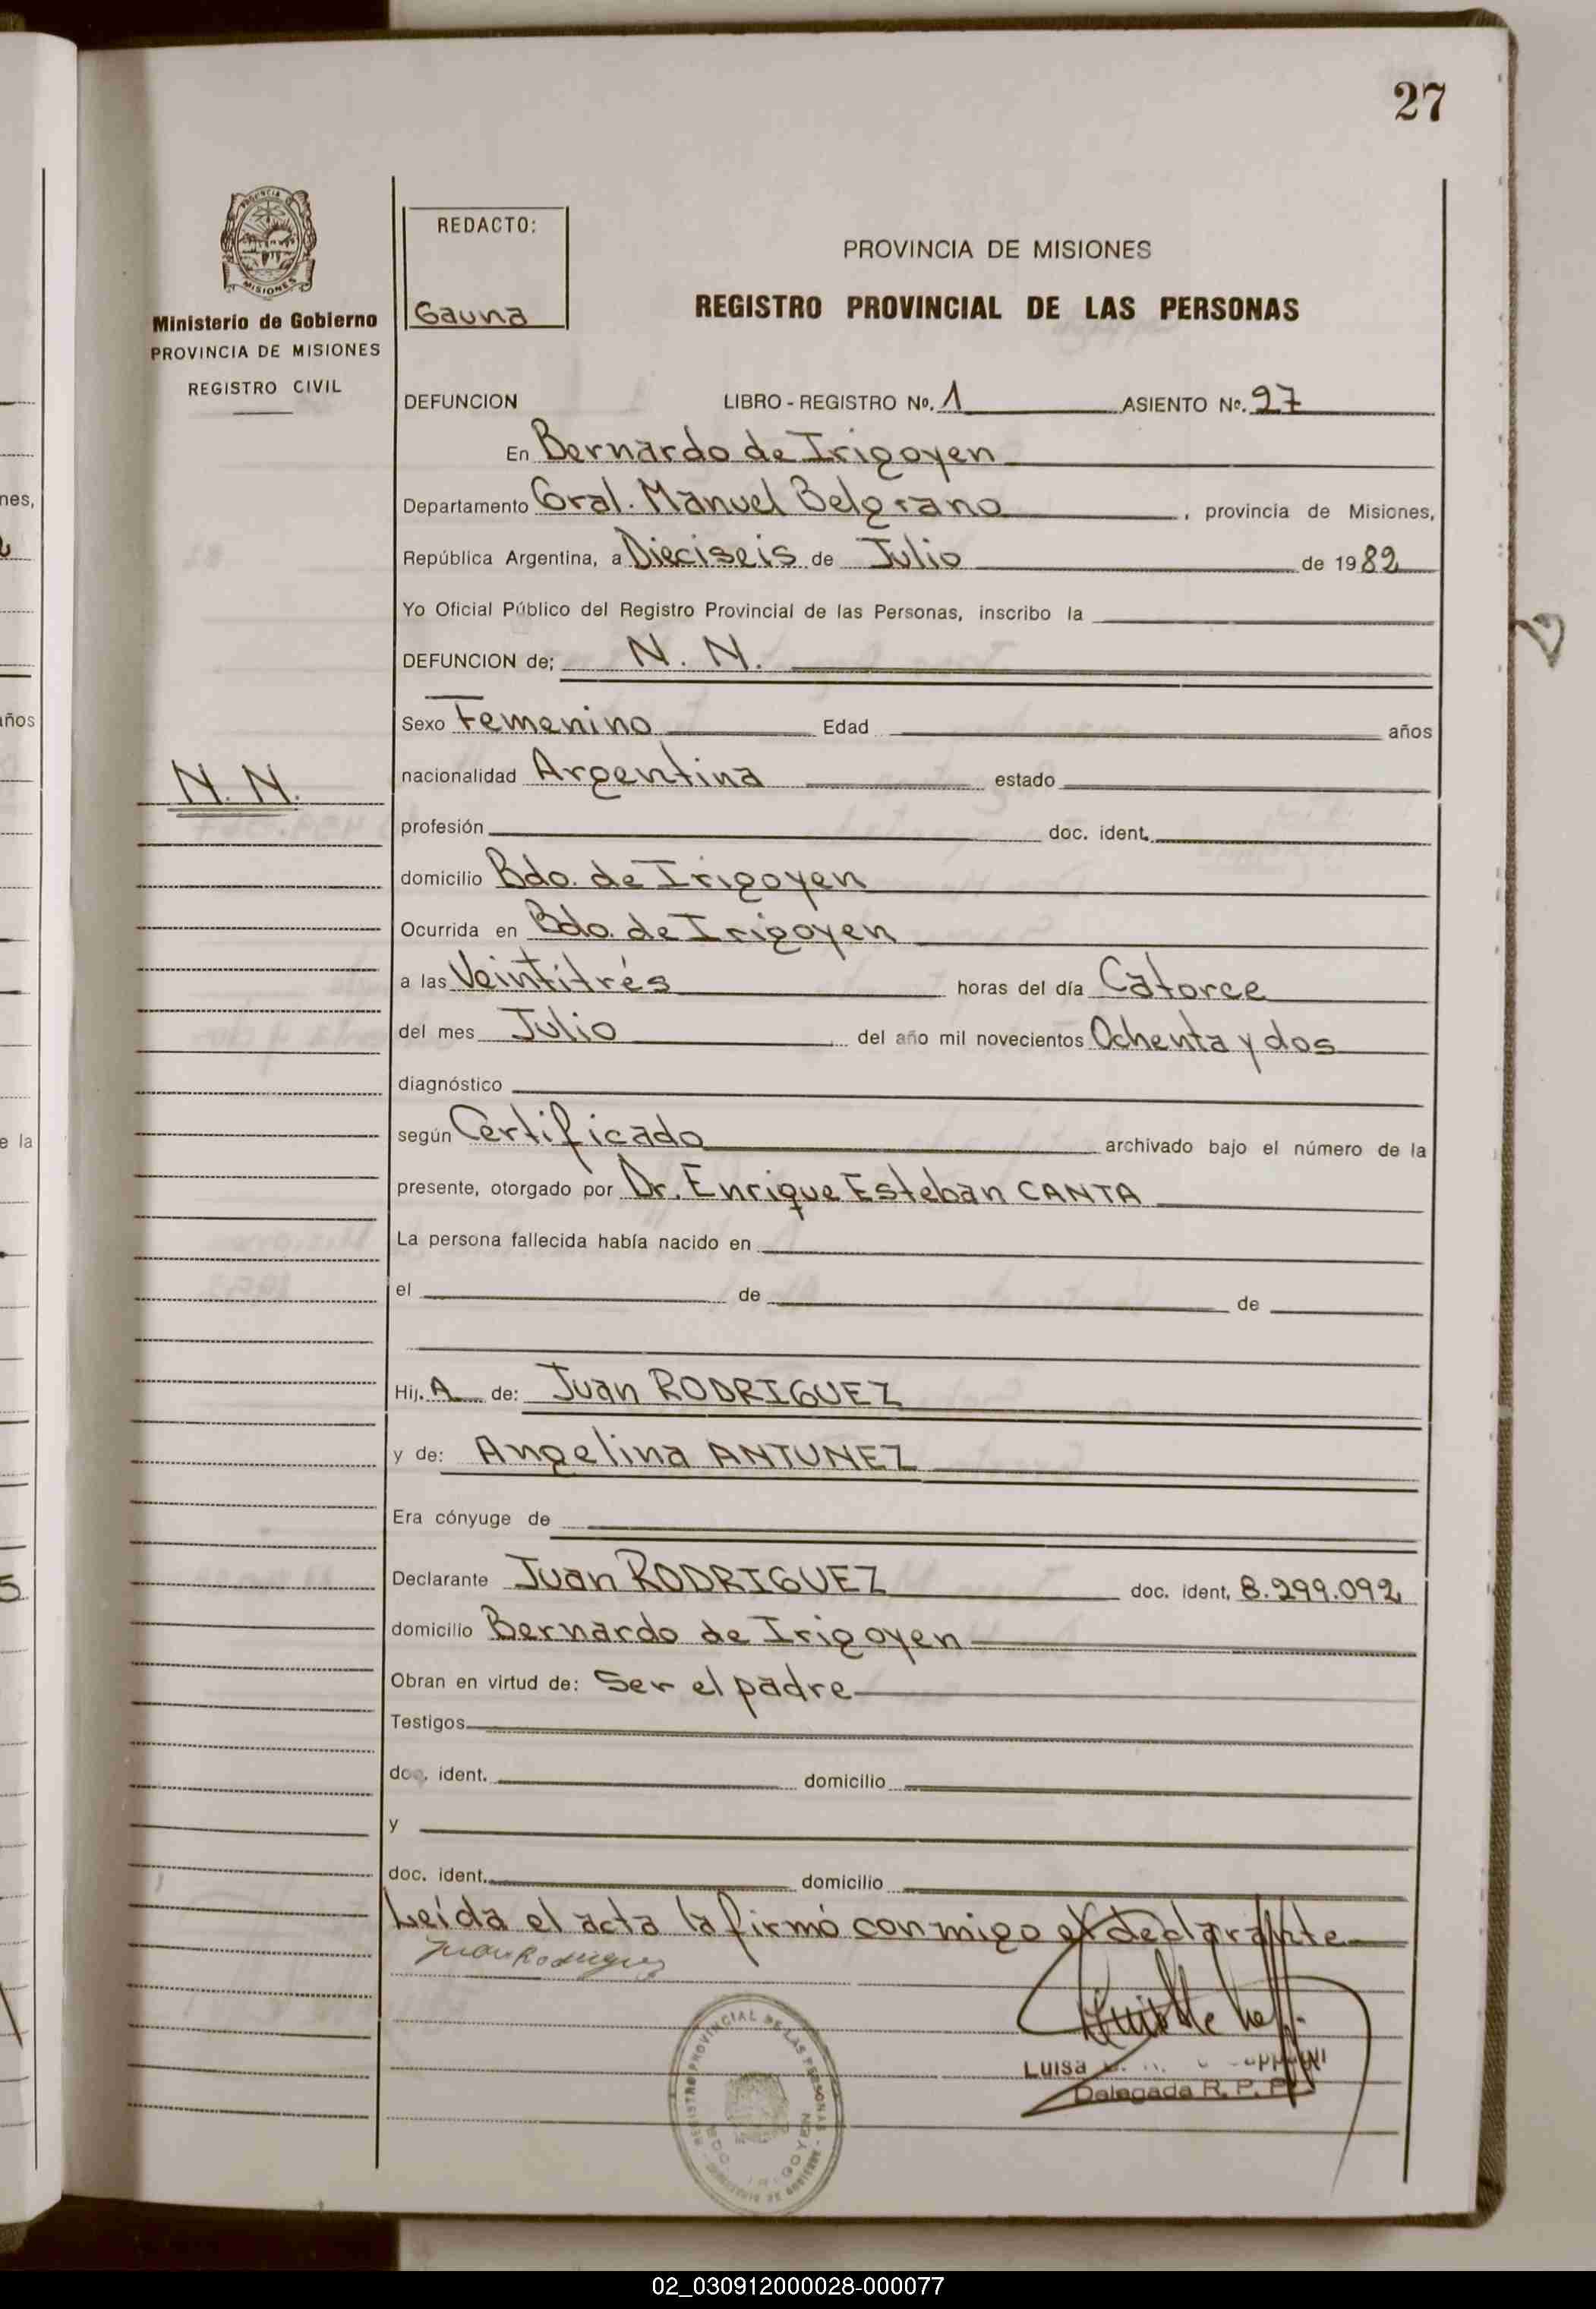 27
PROVINCIA DE
MISIONES
Ministerio de Gobierno
PROVINCIA DE MISIONES
REGISTRO CIVIL
REDACTO:
Gauna
PROVINCIA DE MISIONES
REGISTRO PROVINCIAL DE LAS PERSONAS
DEFUNCION LIBRO - REGISTRO Nº. 1 ASIENTO Nº. 27
En Bernardo de Irigoyen
Departamento Gral. Manuel Belgrano, provincia de Misiones,
República Argentina, a Dieciseis de Julio de 1982
Yo Oficial Público del Registro Provincial de las Personas, inscribo la
DEFUNCION de; N. N.
Sexo Femenino Edad años
N. N.
nacionalidad Argentina estado
profesión doc. ident.
domicilio Bdo. de Irigoyen
Ocurrida en Bdo. de Irigoyen
a las Veintitrés horas del día Catorce
del mes Julio del año mil novecientos Ochenta y dos
diagnóstico
según Certificado archivado bajo el número de la
presente, otorgado por Dr. Enrique Esteban CANTA
La persona fallecida había nacido en
el de de
Hij. A de: Juan RODRIGUEZ
y de: Angelina ANTUNEZ
Era cónyuge de
Declarante Juan RODRIGUEZ doc. ident. 8.299.092
domicilio Bernardo de Irigoyen
Obran en virtud de: Ser el padre
Testigos
doc. ident. domicilio
y
doc. ident. domicilio
Leída el acta la firmó conmigo el declarante
Juan Rodriguez
REGISTRO PROVINCIAL DE LAS PERSONAS
BDO. IRIGOYEN
Luisa
Delegada R. P. P.
nes,
años
e la
02_030912000028-000077